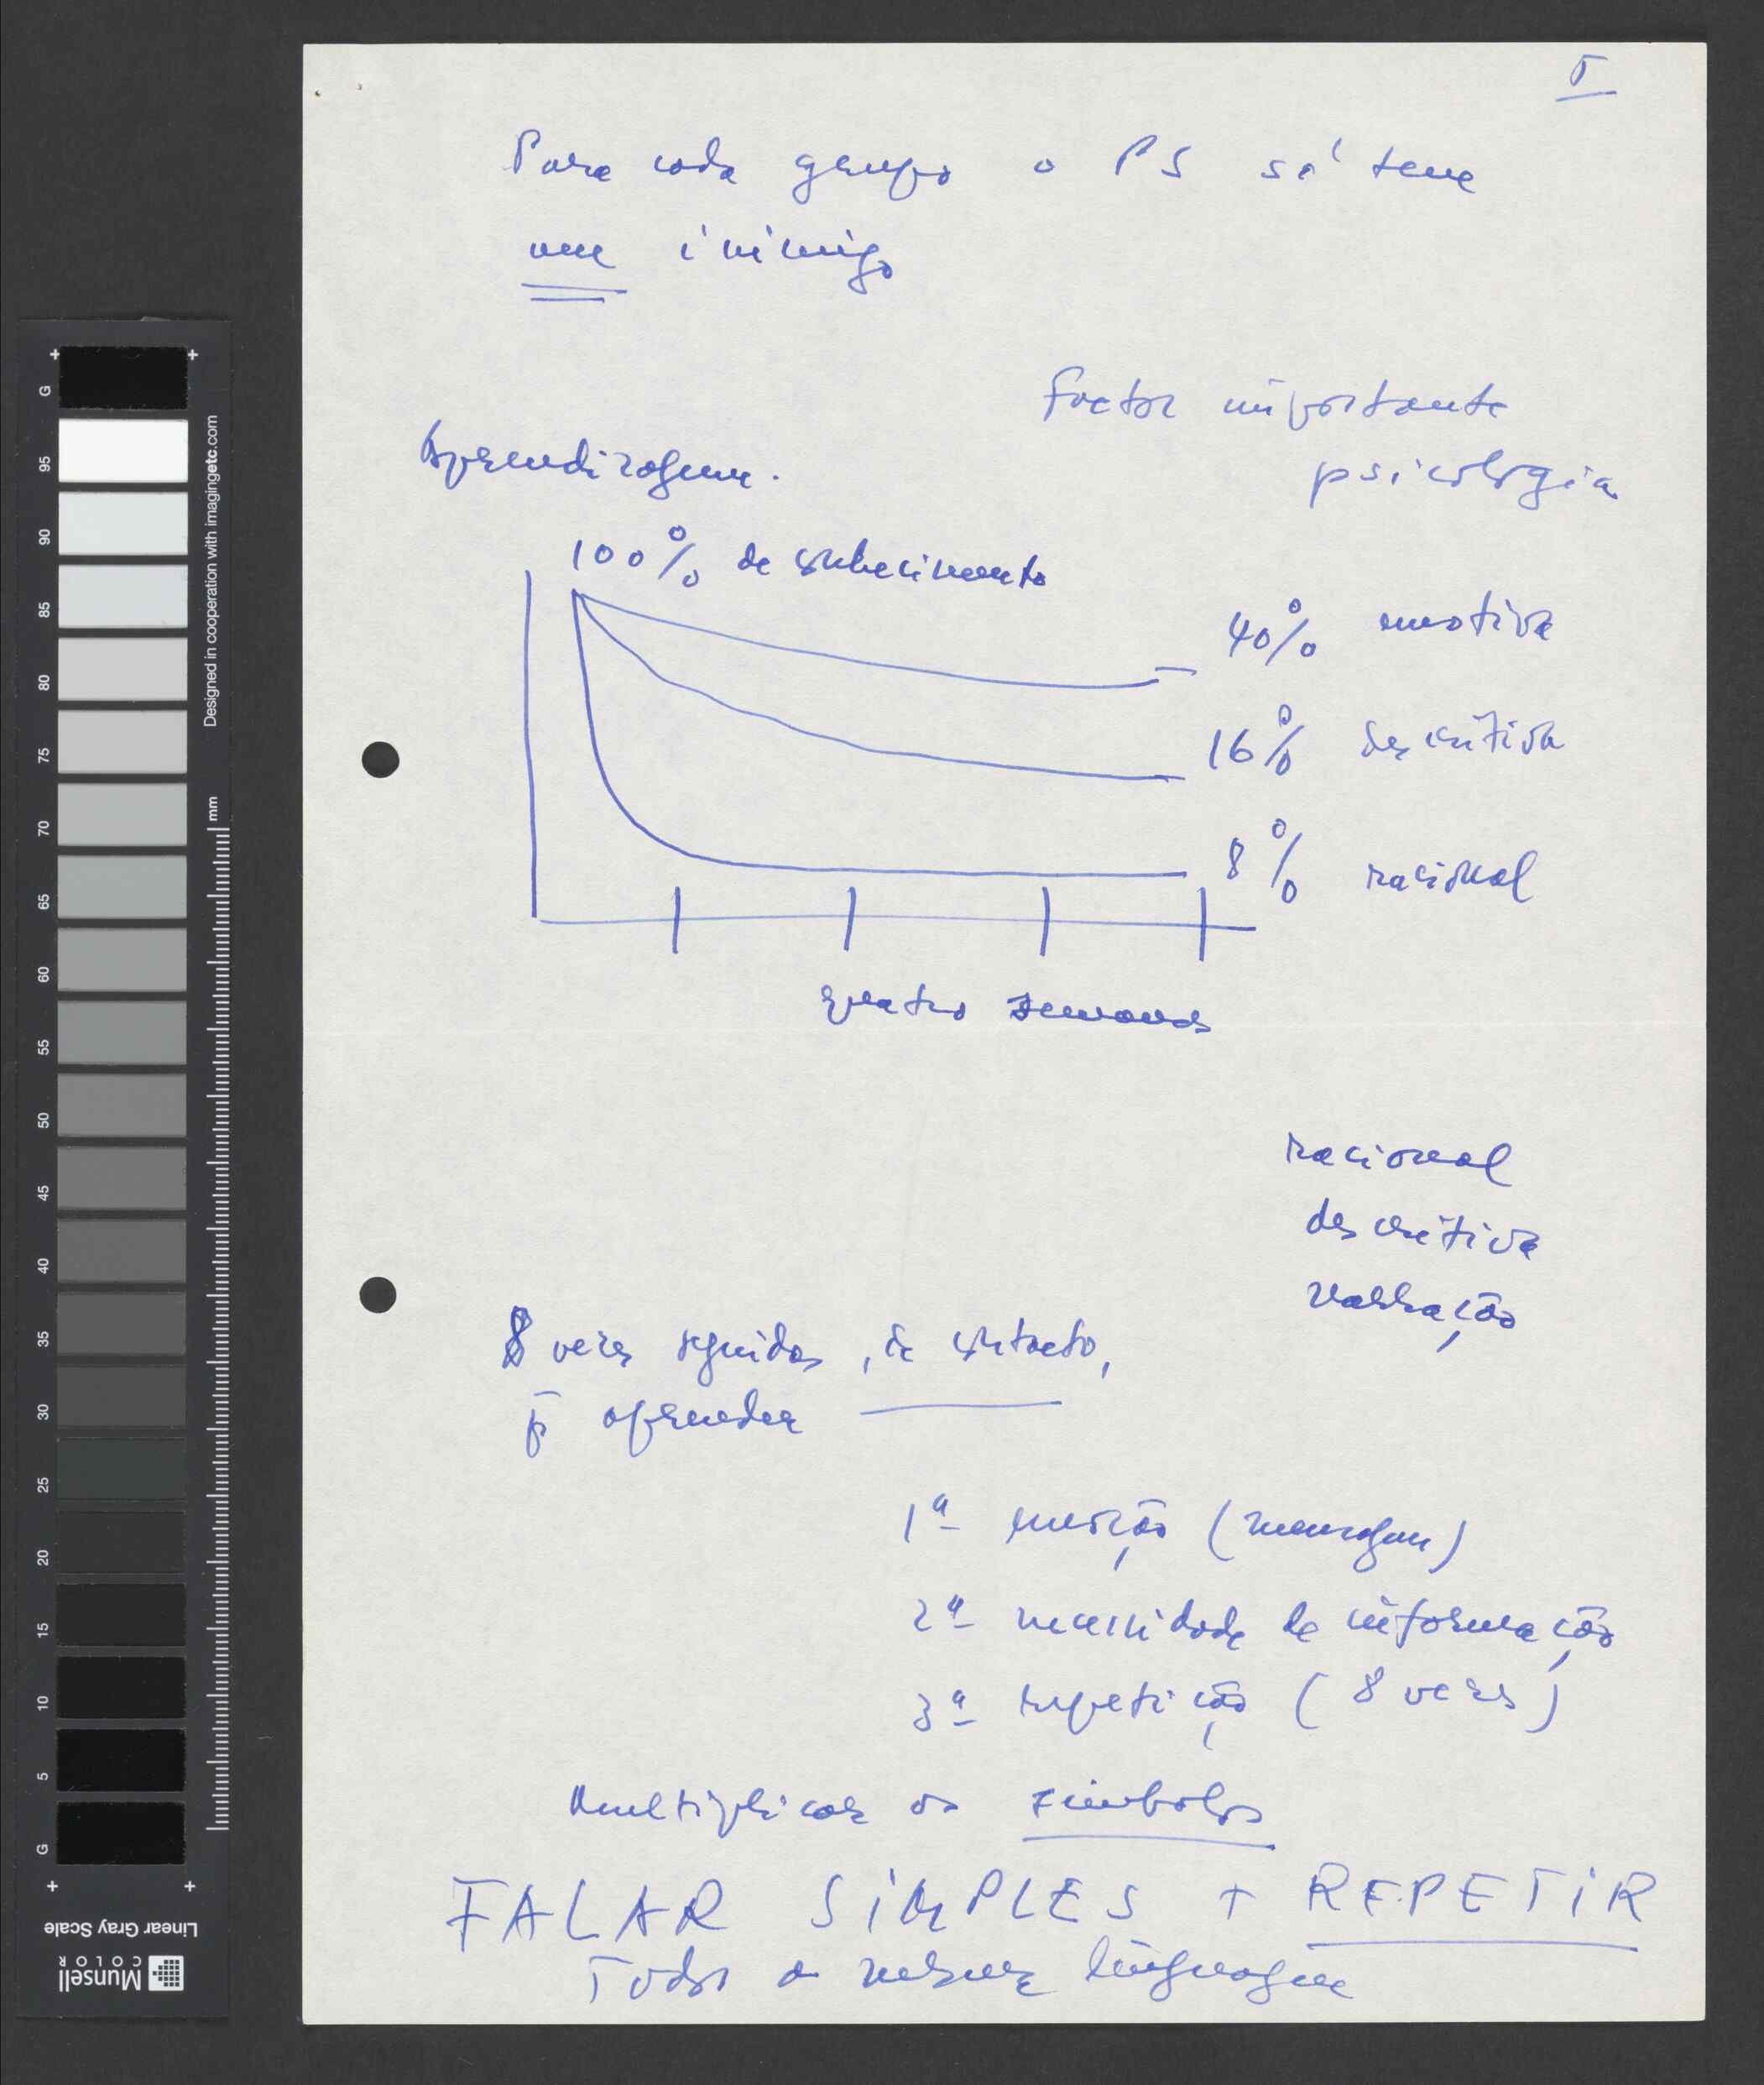 5
Para cada grupo o PS só tem
um inimigo
Factor importante
psicologia
Aprendizagem.
100% de conhecimento
40% emotiva
16% descritiva
8% racional
quatro semanas
racional
descritiva
narração
8 vezes seguidas, de contacto,
p̄ aprender
1ª emoção (mensagem)
2ª necessidade de informação
3ª repetição (8 vezes)
Multiplicar os símbolos
FALAR SIMPLES + REPETIR
Todos a mesma linguagem
G 95 90 85 80 75 70 65 60 55 50 45 40 35 30 25 20 15 10 5 G
Designed in cooperation with imagingetc.com
mm
Linear Gray Scale
Munsell
COLOR